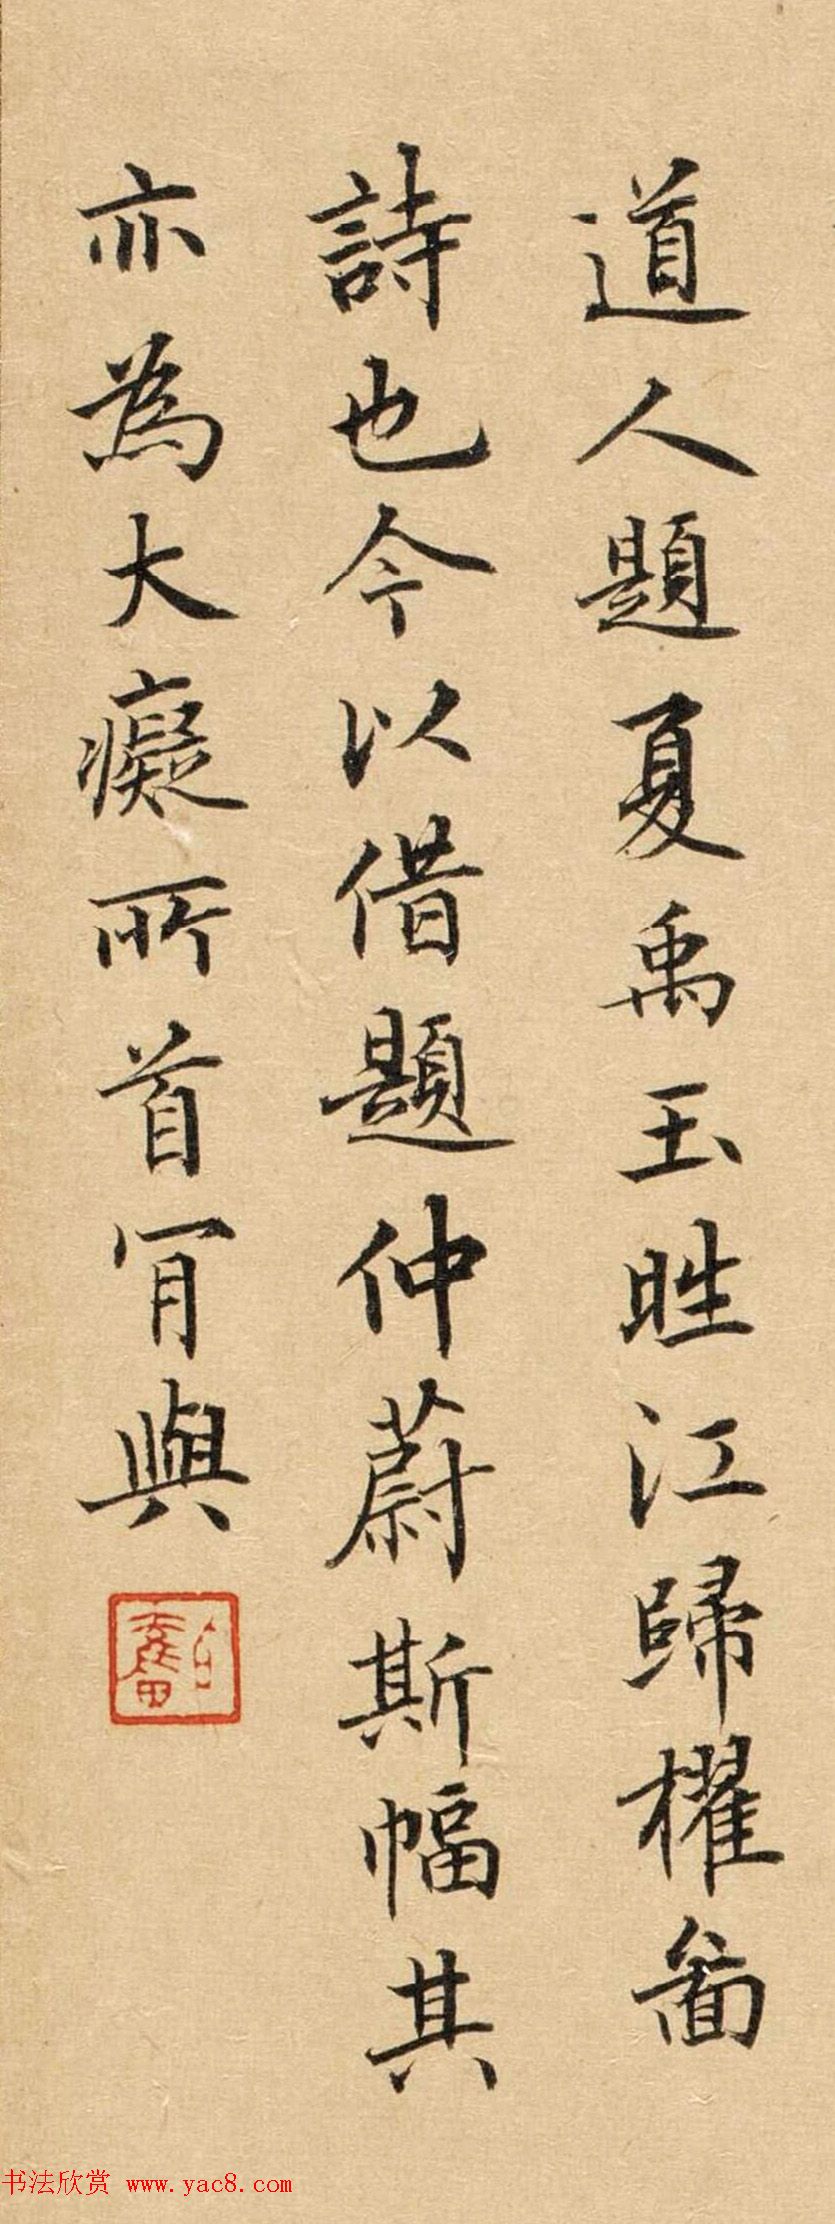 道人題夏禹玉晴江歸櫂啚
詩也今以借題仲蔚斯幅其
亦為大癡所首肎與
书法欣赏 www.yac8.com